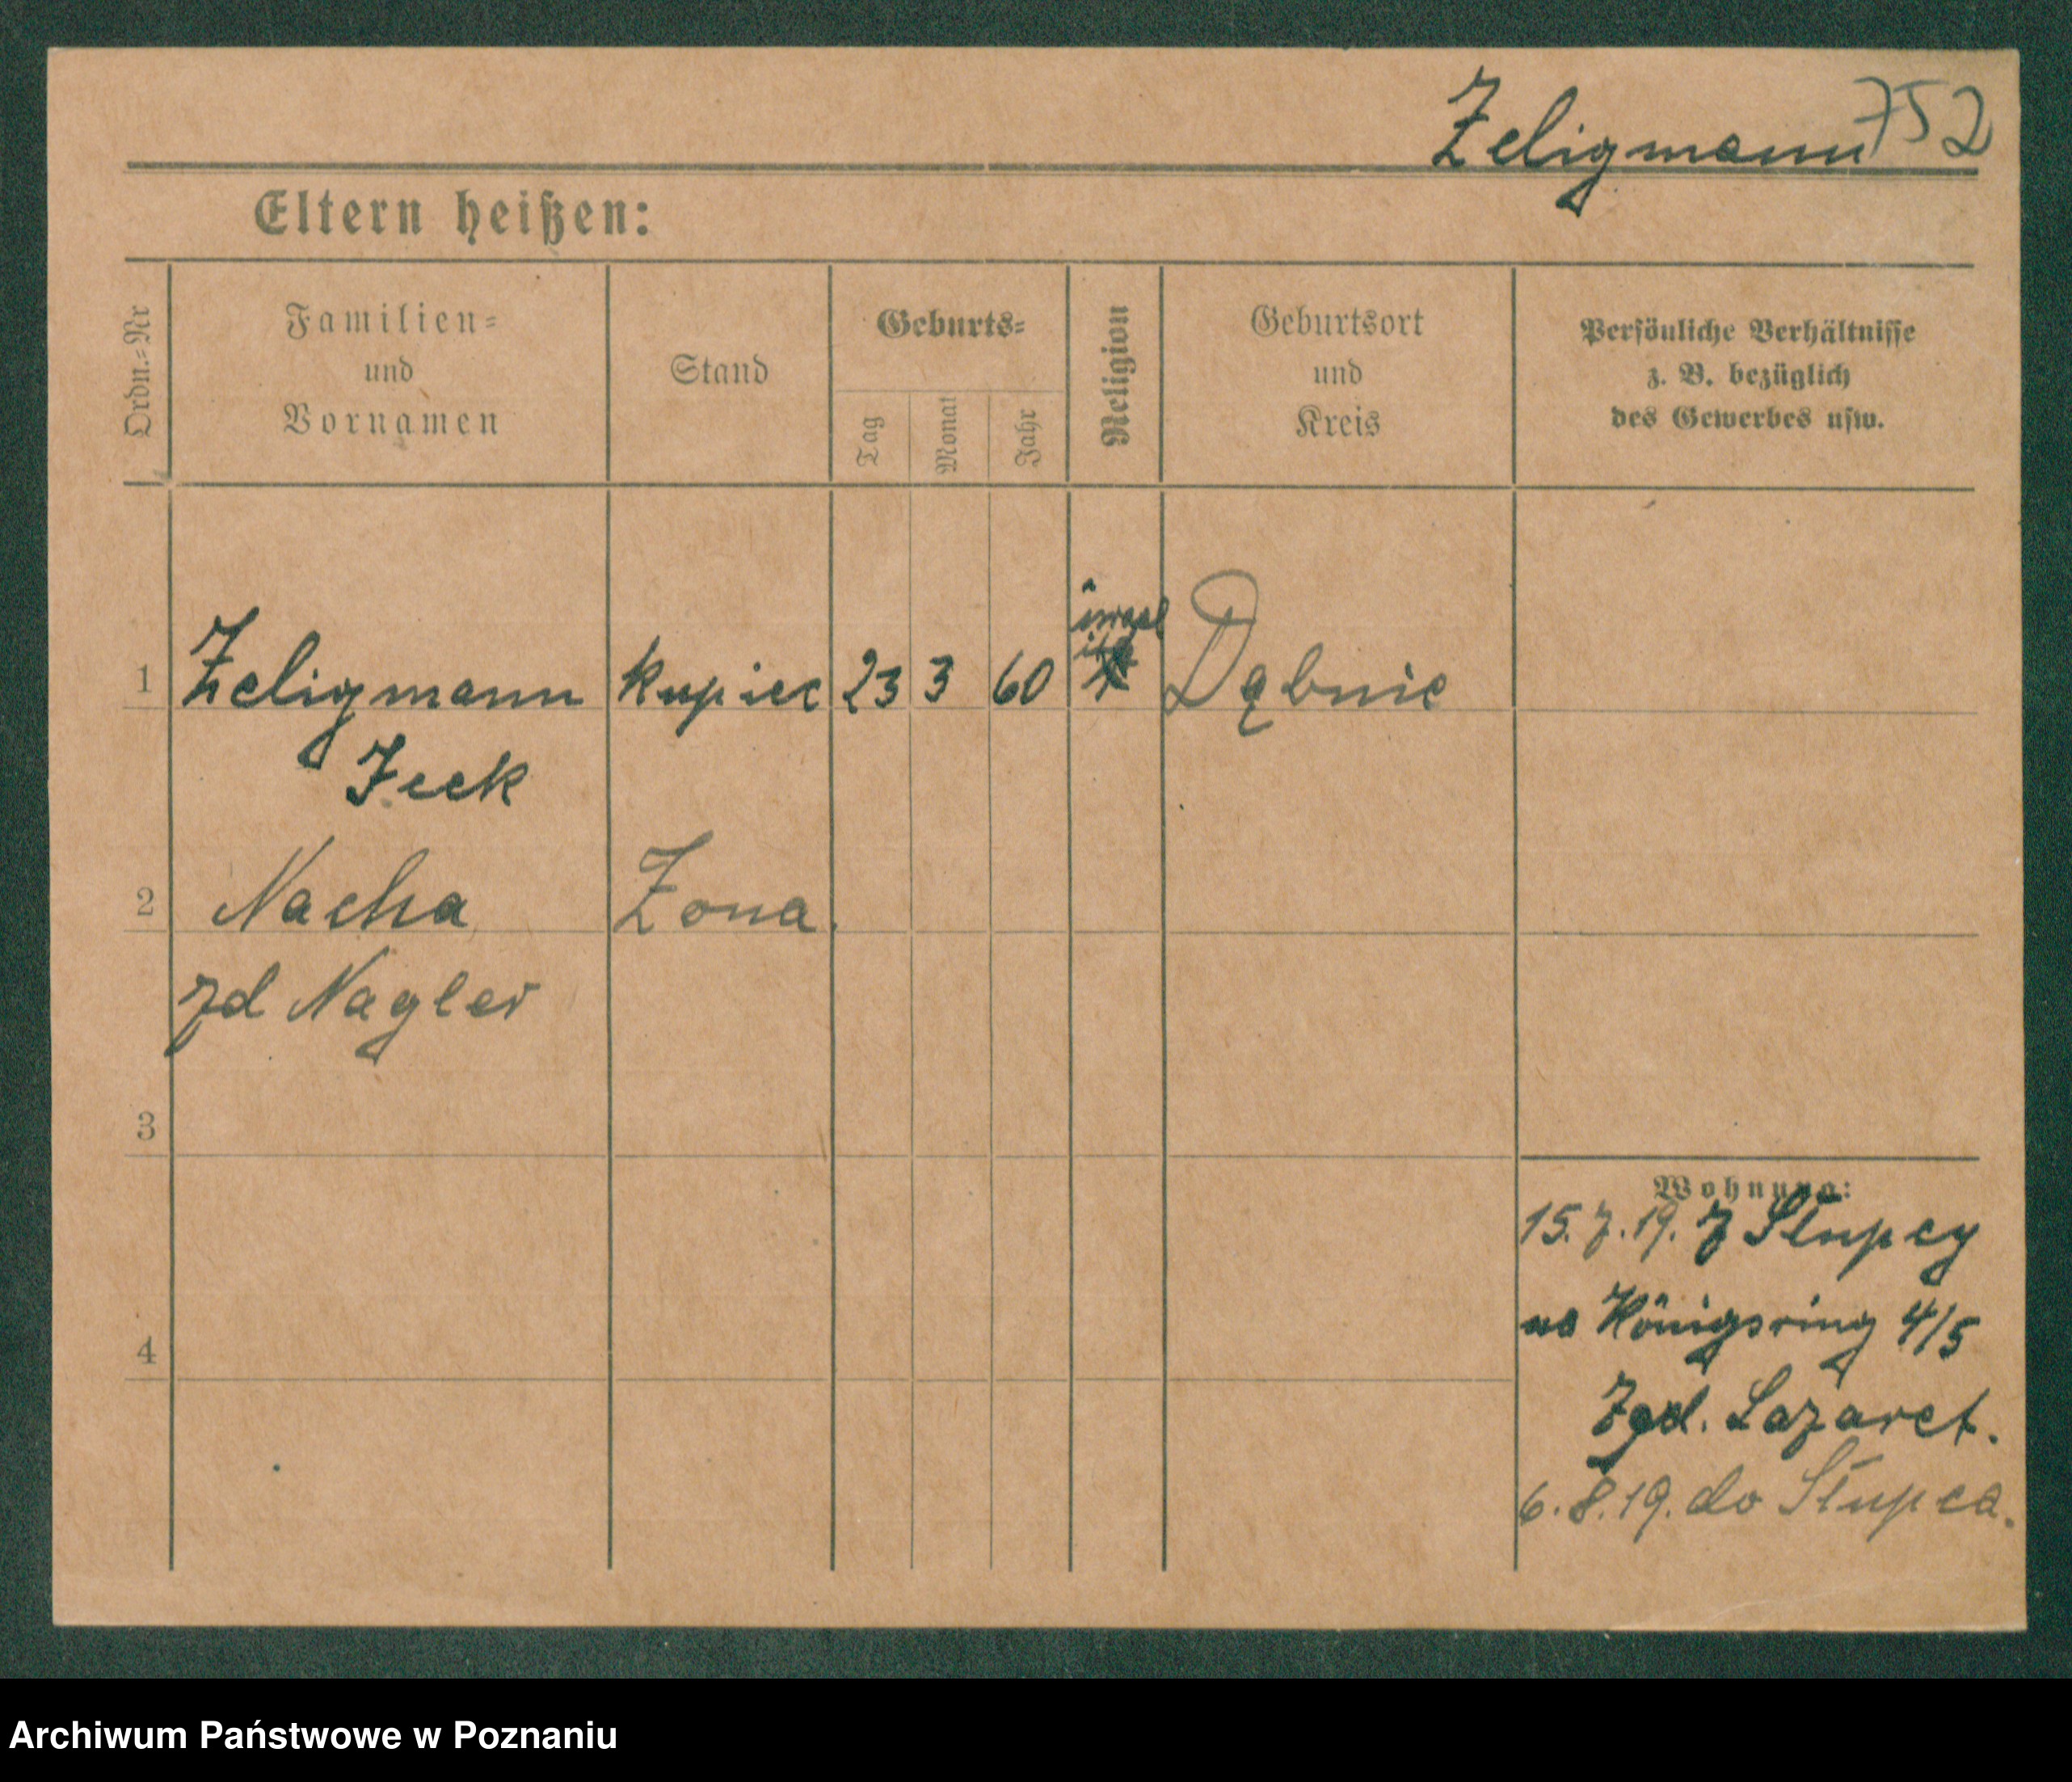 Zeligmann 752
Eltern heißen:
Ordn.=Nr
Familien=
und
Vornamen
Stand
Geburts=
Tag
Monat
Jahr
Religion
Geburtsort
und
Kreis
Persönliche Verhältnisse
z. B. bezüglich
des Gewerbes usw.
1 Zeligmann kupiec 23 3 60 Dąbnie
Icek
2 Nacha Zona.
zd Nagler
3
4
Wohnung:
15.7.19. z Słupcy
na Königsring 4/5
Lazaret.
6.8.19. do Słupca.
Archiwum Państwowe w Poznaniu